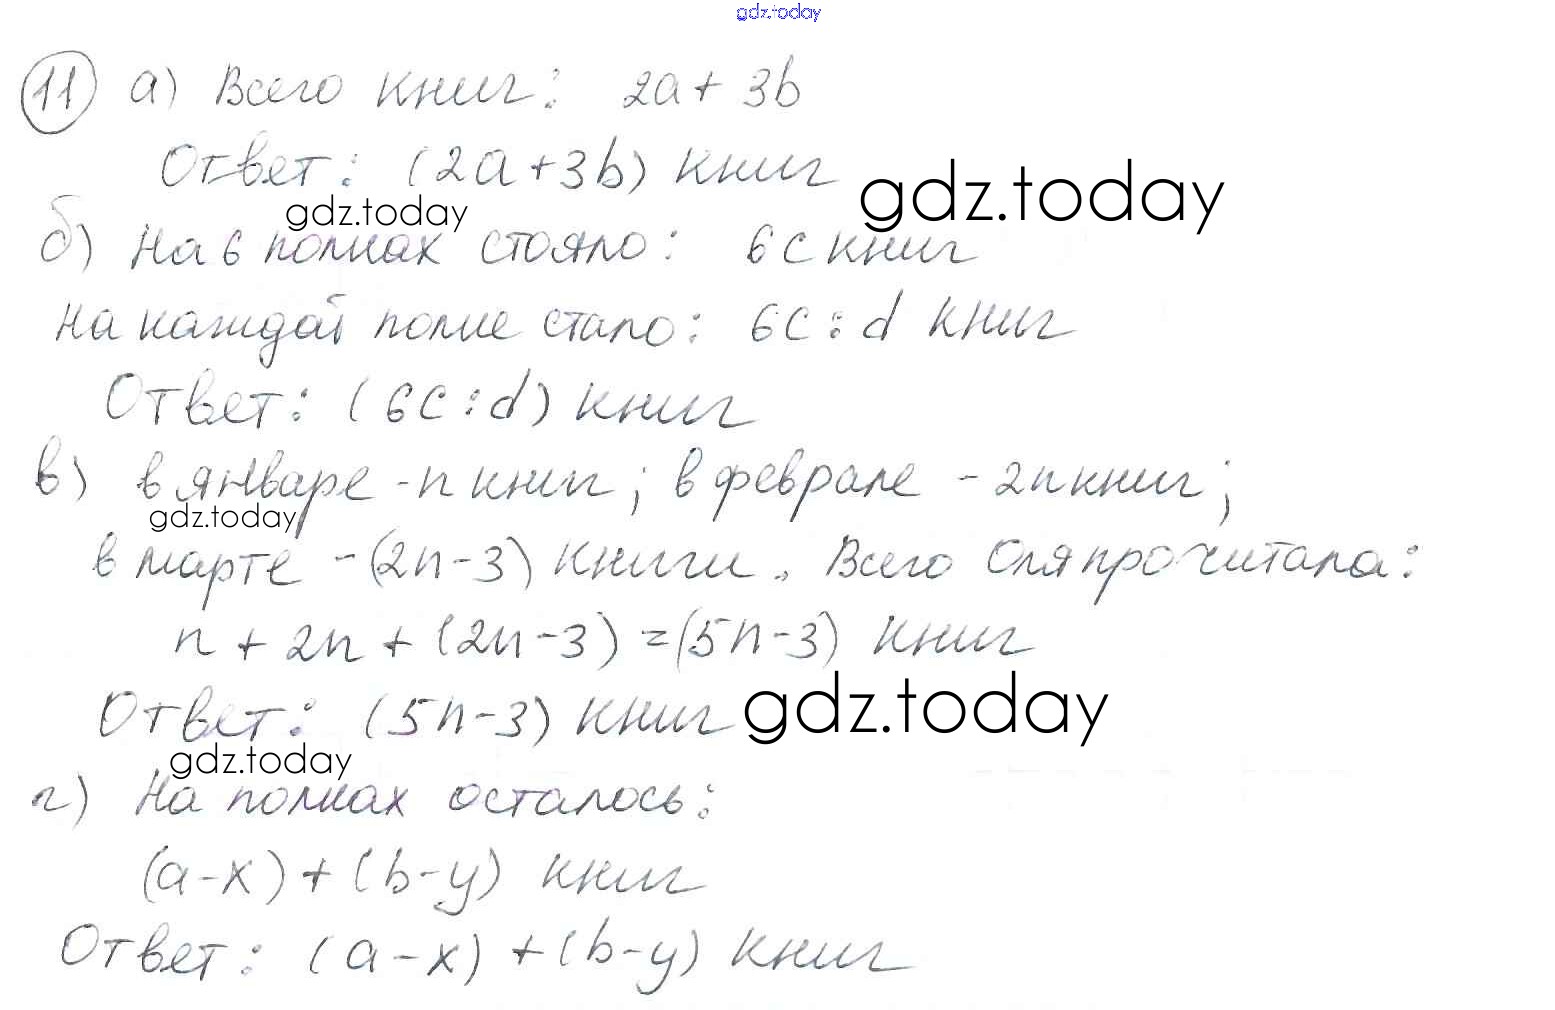 gdz.today
11 а) Всего книг: 2a + 3b
Ответ: (2a + 3b) книг
gdz.today
gdz.today
б) На 6 полках стояло: 6c книг
На каждой полке стало: 6c : d книг
Ответ: (6c : d) книг
в) в январе - n книг; в феврале - 2n книг;
gdz.today
в марте - (2n - 3) книги. Всего Оля прочитала:
n + 2n + (2n - 3) = (5n - 3) книг
Ответ: (5n - 3) книг
gdz.today
gdz.today
г) На полках осталось:
(a - x) + (b - y) книг
Ответ: (a - x) + (b - y) книг